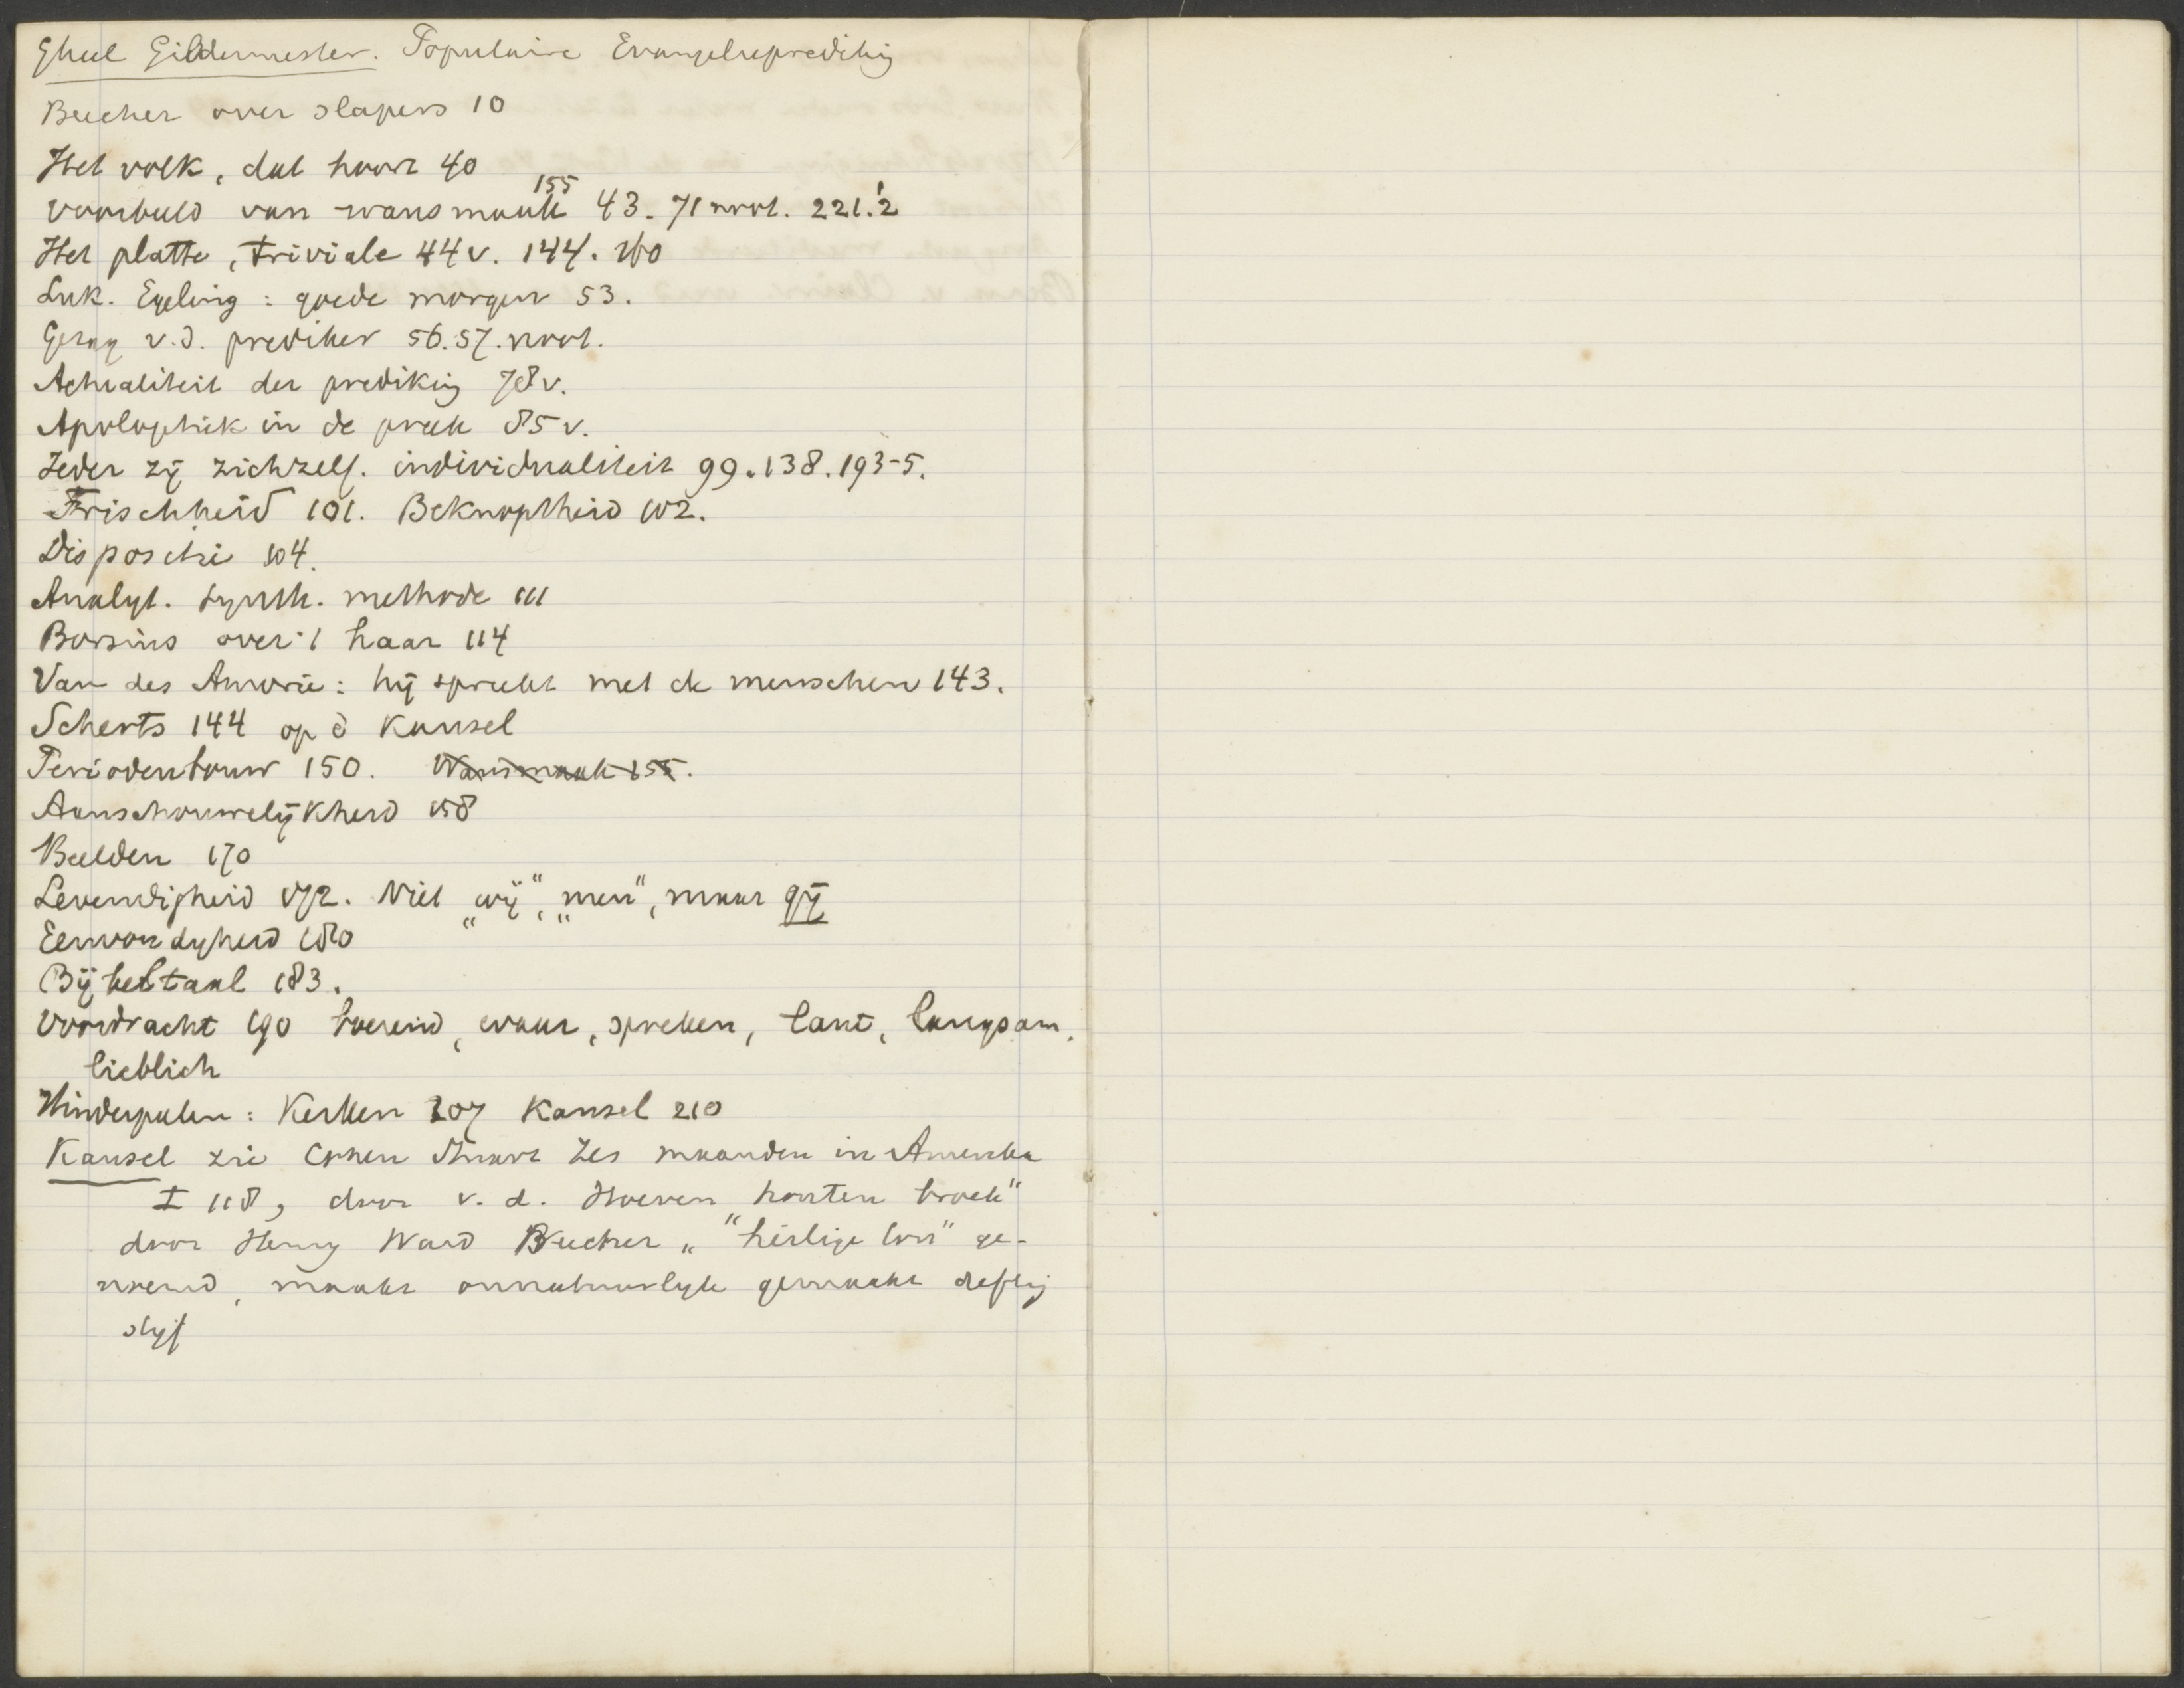 Gheel Gildermester. Populaire Evangelieprediking
Beecher over slapers 10
Het volk, dat hoort 40
155
Voorbeeld van wansmaak 43. 71 noot. 221.2
Het platte, triviale 44v. 144. 160
Luk. Egeling: goede morgen 53.
Gezag v.d. prediker 56.57. noot.
Actualiteit der prediking 78v.
Apologetiek in de preek 85v.
Ieder zij zichzelf. individualiteit 99.138.193-5.
Frischheid 101. Beknoptheid 102.
Dispositie 104.
Analyt. synth. methode 111
Borsius over 't haar 114
Van des Amorie: hij spreekt met de menschen 143.
Scherts 144 op d kansel
Periodenbouw 150. Wansmaak 155.
Aanschouwelijkheid 158
Beelden 170
Levendigheid 172. Niet „wij", „men", maar gij
Eenvoudigheid 180
Bijbeltaal 183.
Voordracht 190 boeiend, waar, spreken, laut, langsam,
lieblich
Hinderpalen: Kerken 207 Kansel 210
Kansel zie Cohen Stuart Zes maanden in Amerika
I 118, door v. d. Hoeven houten broek"
door Henry Ward Beecher „"heilige ton" ge-
noemd, maakt onnatuurlijk gemaakt deftig
stijf